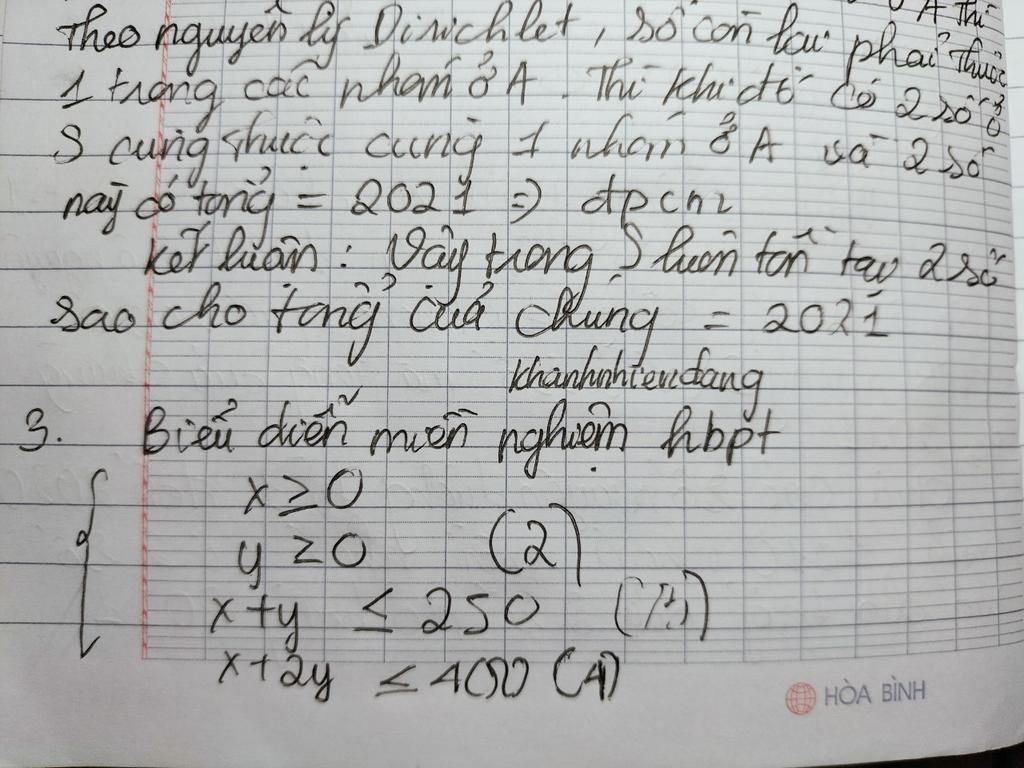 A thì
Theo nguyên lý Dirichlet, số còn lại phải thuộc
1 trong các nhóm ở A. Thì khi đó có 2 số ở
S cùng thuộc cùng 1 nhóm ở A và 2 số
này có tổng = 2021 => đpcm
kết luận: Vậy trong S luôn tồn tại 2 số
sao cho tổng của chúng = 2021
khanhnhiendang
3. Biểu diễn miền nghiệm hbpt
x ≥ 0
y ≥ 0 (2)
x + y ≤ 250
x + 2y ≤ 400 (4)
HÒA BÌNH